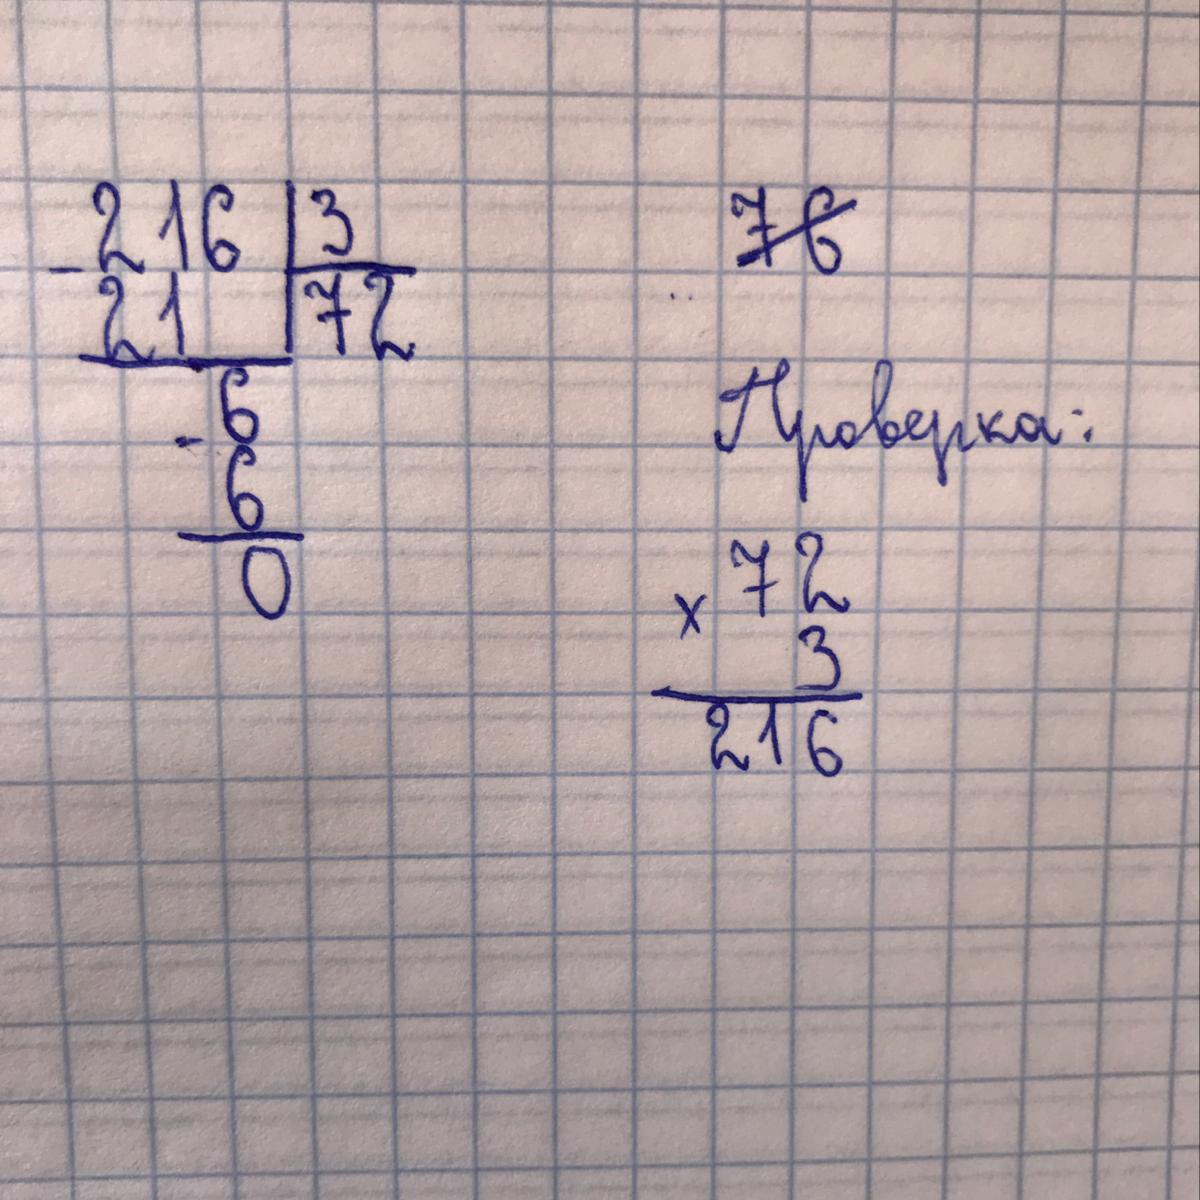 216 | 3
- 21 | 72
6
- 6
0
76
Проверка:
72
× 3
216